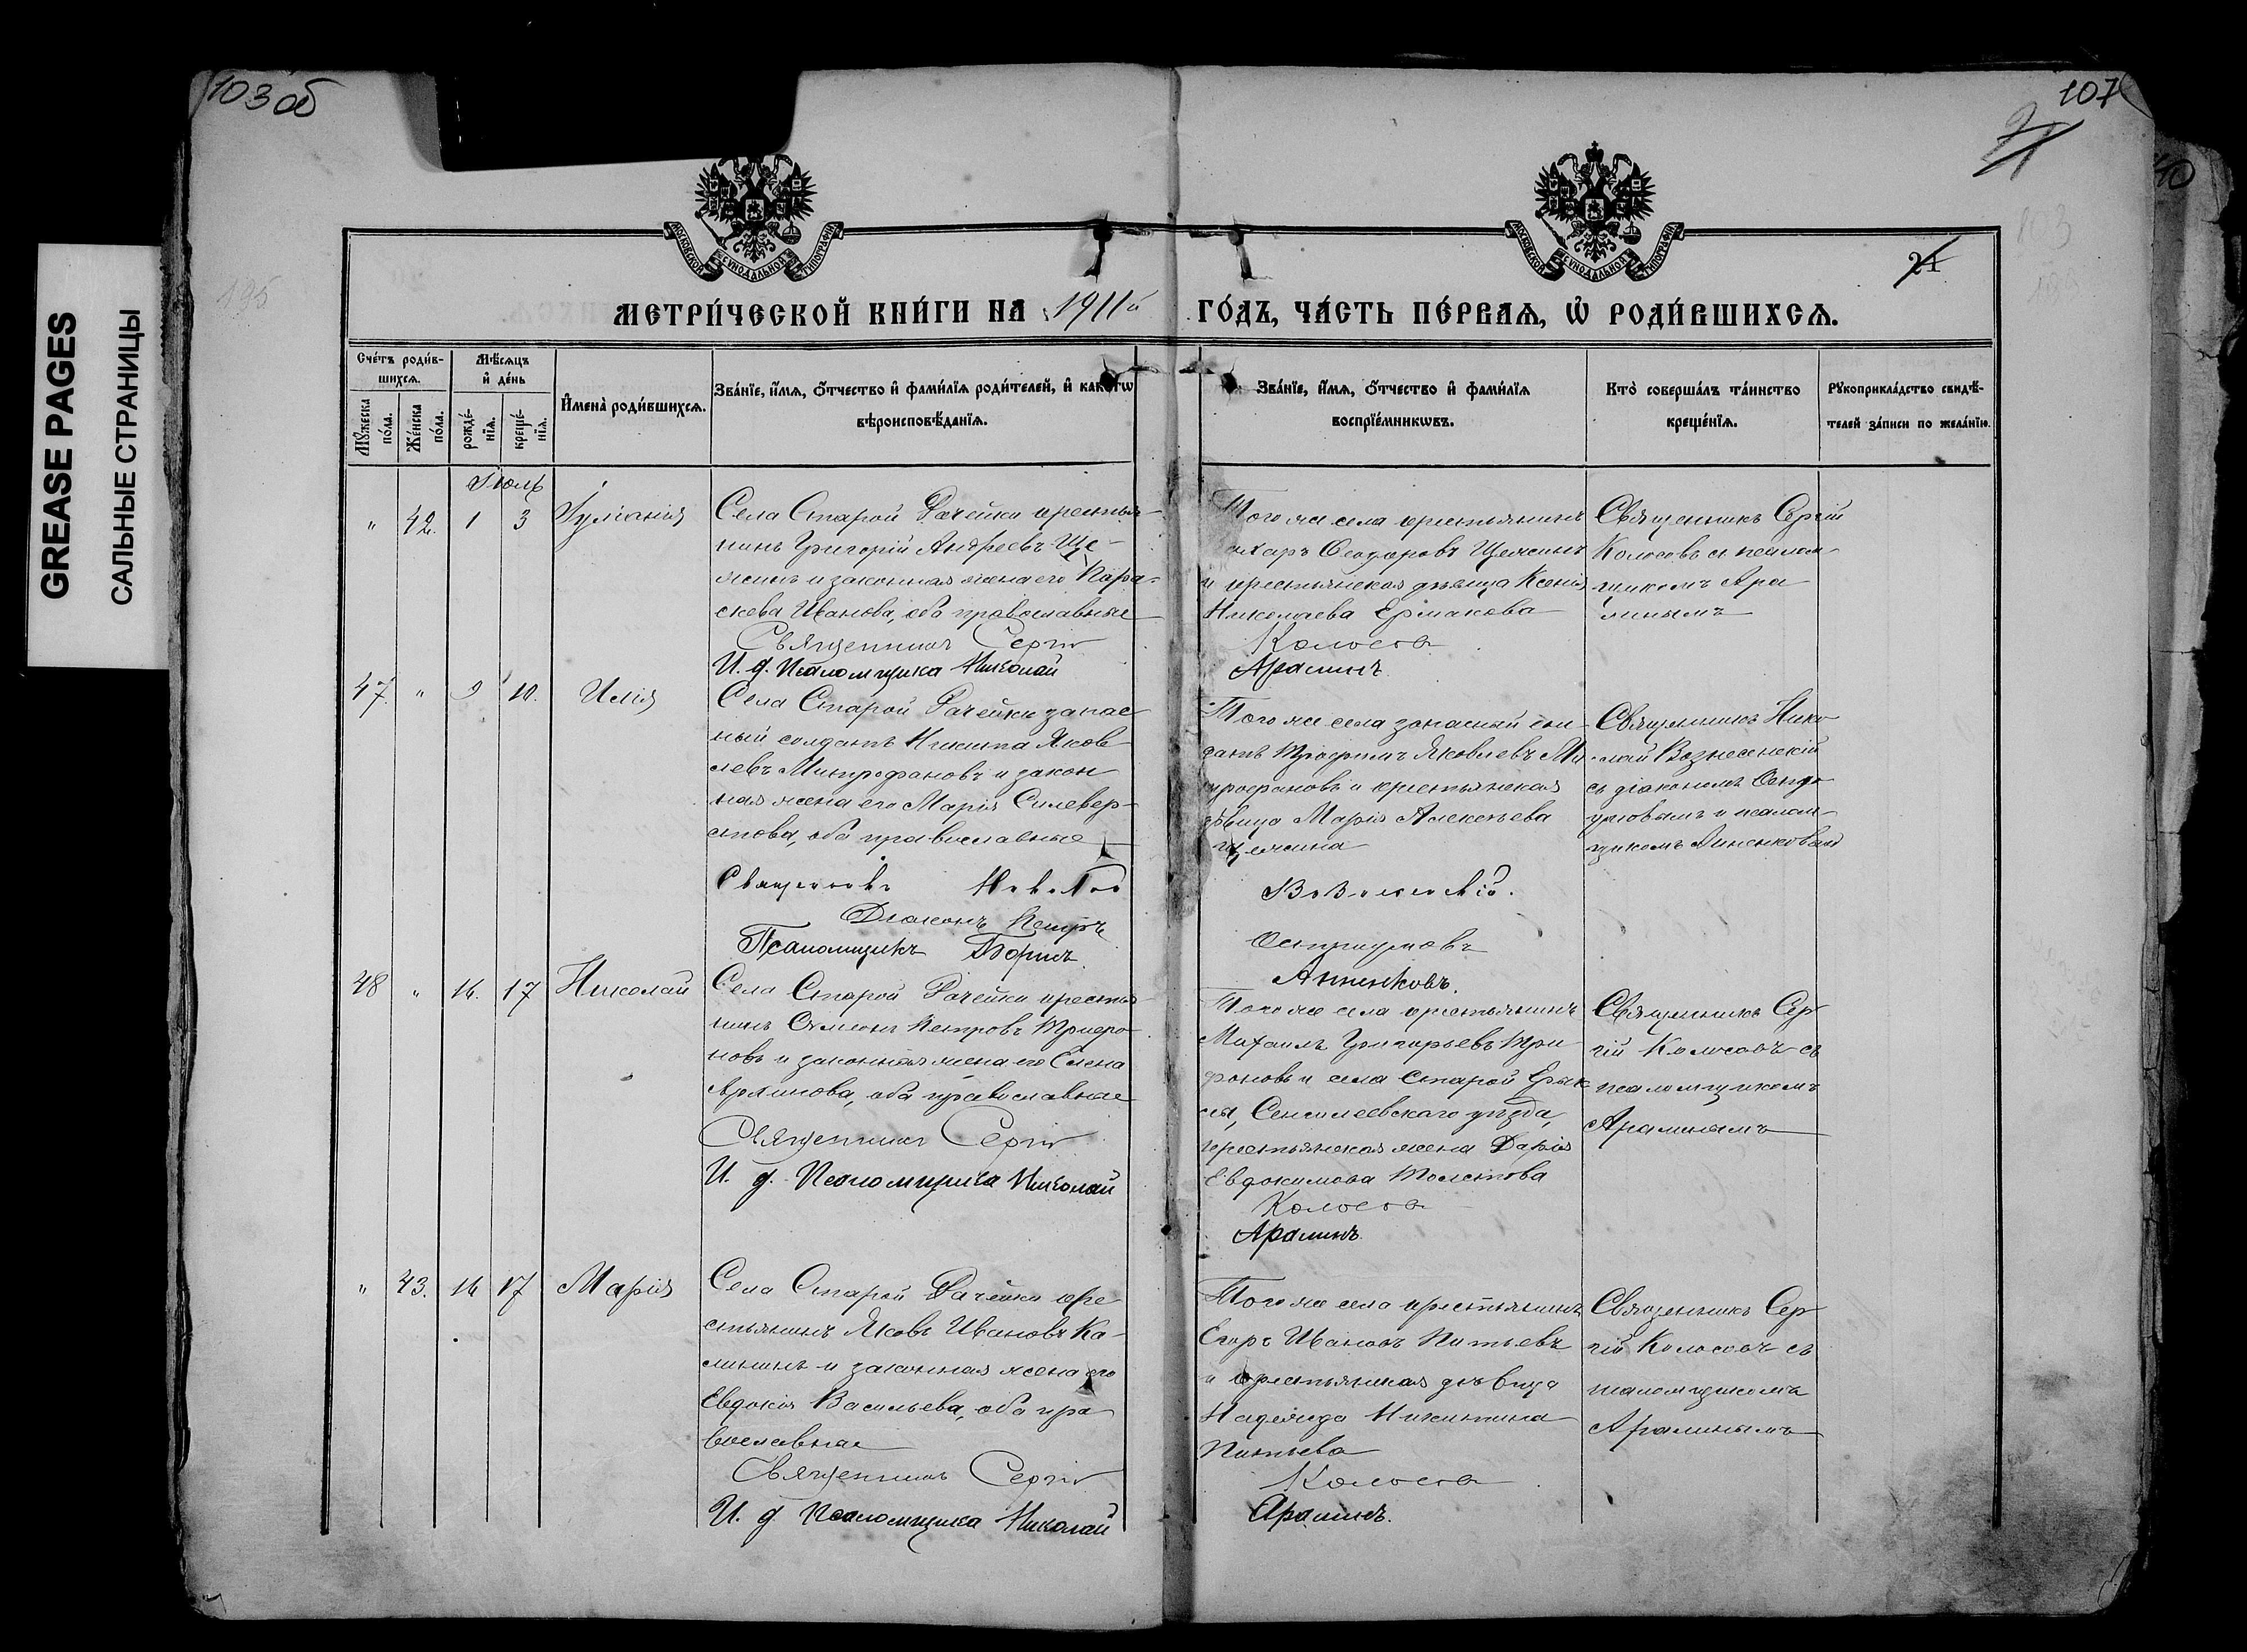 103 об
107
21
GREASE PAGES
САЛЬНЫЕ СТРАНИЦЫ
195
103
МОСКОВСКОЙ СѴНОДАЛЬНОЙ ТИПОГРАФІИ
МОСКОВСКОЙ СѴНОДАЛЬНОЙ ТИПОГРАФІИ
21
МЕТРИ́ЧЕСКОЙ КНИ́ГИ НА 1911й ГО́ДЪ, ЧА́СТЬ ПЕ́РВАЯ, Ѽ РОДИ́ВШИХСЯ.
Сче́тъ роди́в-
шихся.
Мѣ́сяцъ
и де́нь
Му́жеска по́ла.
Же́нска по́ла.
рожде́нїя.
креще́нїя.
И҆мена̀ роди́вшихся.
Зва́нїе, и҆́мя, ѻ҆́тчество и҆ фами́лїя роди́телей, и҆ како́гѡ
вѣроисповѣ́данїя.
Зва́нїе, и҆́мя, ѻ҆́тчество и҆ фами́лїя
воспрїе́мникѡвъ.
Кто̀ соверша́лъ та́инство
креще́нїя.
Рꙋкоприкла́дство свидѣ́-
телей за́писи по жела́нїю.
Іюль
" 42. 1 3 Іуліанія
Села Старой Рачейки крестья-
нинъ Григорій Андреевъ Ще-
жинъ и законная жена его Пара-
скева Иванова, оба православные
Священникъ Сергій
И. д. Псаломщика Николай
Того же села крестьянинъ
Ѳеодоровъ Щежинъ
и крестьянская дѣвица Ксенія
Николаева Ермакова
Колосовъ
Аралинъ.
Священникъ Сергій
Колосовъ с псалом-
щикомъ Ара-
линымъ
47. " 9 10. Илія
Села Старой Рачейки запас
ный солдатъ Никита Яков
левъ Митрофановъ и закон
ная жена его Марія Силевер-
стова, оба православные
Священникъ Николай
Діаконъ Петръ
Псаломщикъ Борисъ
Того же села запасный сол-
датъ Трофимъ Яковлевъ Ми
трофановъ и крестьянская
дѣвица Марія Алексѣева
Щежина
Вознесенскій.
Остроумовъ
Анненковъ.
Священникъ Нико
лай Вознесенскій
съ діакономъ Остро
умовымъ и псалом-
щикомъ Анненковым
48 " 16. 17 Николай
Села Старой Рачейки крестья
нинъ Симеонъ Петровъ Трифо
новъ и законная жена его Елена
оба православные
Священникъ Сергій
И. д. Псаломщика Николай
Того же села крестьянинъ
Михаилъ Григорьевъ Три
фоновъ и села Старой Ерык
лы, Сенгилеевскаго уѣзда,
крестьянская жена Дарія
Евдокимова Толстова
Колосовъ
Аралинъ.
Священникъ Сер
гій Колосовъ съ
псаломщикомъ
Аралинымъ
" 43. 16 17 Марія
Села Старой Рачейки кре
стьянинъ Яковъ Ивановъ Ка-
лининъ и законная жена его
Евдокія Васильева, оба пра
вославные
Священникъ Сергій
И. д. Псаломщика Николай
Того же села крестьянинъ
Егоръ Ивановъ Питьевъ
и крестьянская дѣвица
Надежда Никитина
Питьева
Колосовъ
Аралинъ.
Священникъ Сер
гій Колосовъ съ
псаломщикомъ
Аралинымъ